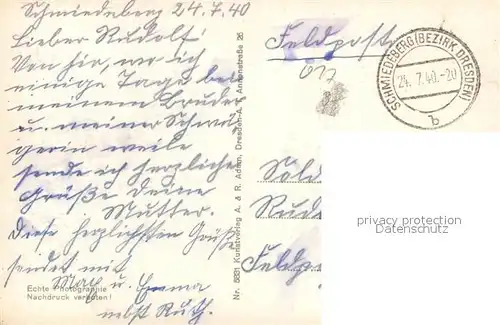 Schmiedeberg 24.7.40
Lieber Rudolf!
Von hier, wo ich
einige Tage bei
meinem Bruder
u. meiner Schwä-
gerin weile
sende ich herzliche
Grüße Deine
Mutter.
Diese herzlichsten Grüße
sendet mit
May u. Emma
nebst Ruth.
Echte Photographie
Nachdruck verboten!
Nr. 5831 Kunstverlag A. & R. Adam, Dresden-A., Annenstraße 26
Feldpost
SCHMIEDEBERG (BEZIRK DRESDEN)
24.7.40.-20
b
Sold
Rud
Feldp
privacy protection
Datenschutz